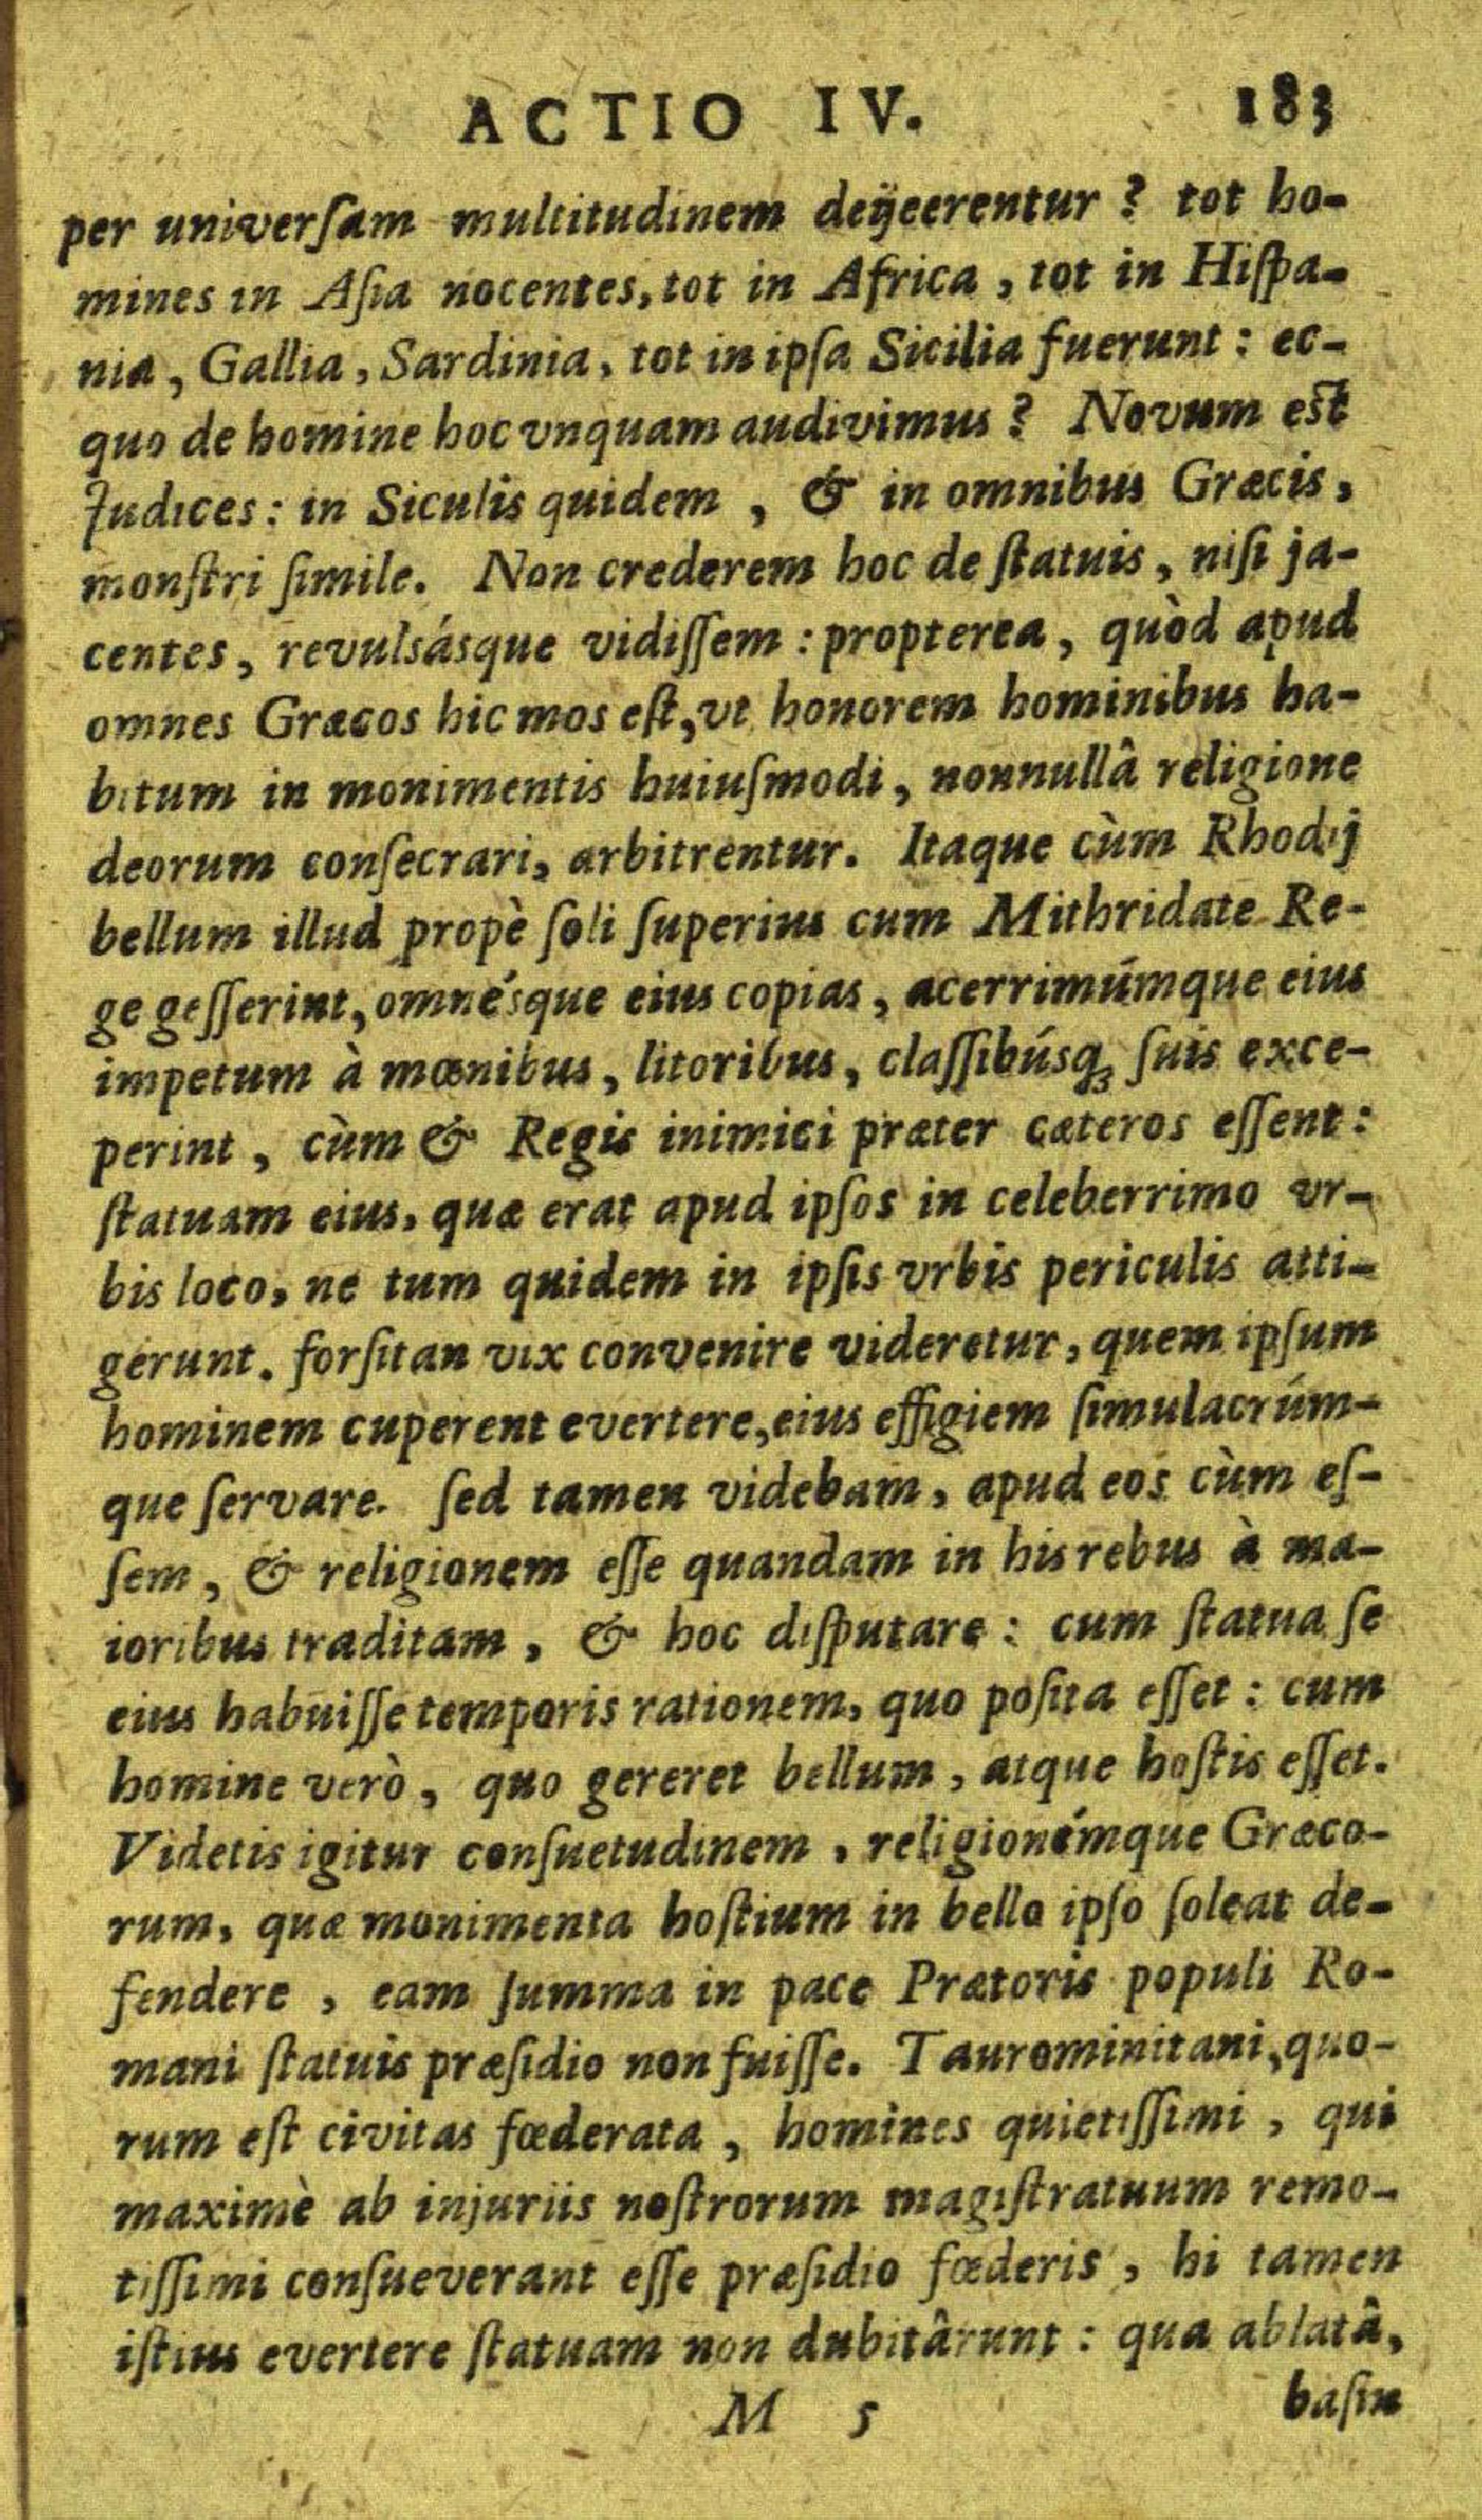 ACTIO IV. 183
per univerſam multitudinem deijeerentur ? tot ho-
mines in Aſia nocentes, tot in Africa, tot in Hiſpa-
nia, Gallia, Sardinia, tot in ipſa Sicilia fuerunt : ec-
quo de homine hoc vnquam audivimus ? Novum eſt
Judices : in Siculis quidem, & in omnibus Græcis,
monſtri ſimile. Non crederem hoc de ſtatuis, niſi ja-
centes, revulsásque vidiſſem : propterea, quòd apud
omnes Græcos hic mos eſt, vt honorem hominibus ha-
bitum in monimentis huiuſmodi, nonnullâ religione
deorum conſecrari, arbitrentur. Itaque cùm Rhodij
bellum illud propè ſoli ſuperius cum Mithridate Re-
ge geſſerint, omnésque eius copias, acerrimúmque eius
impetum à mœnibus, litoribus, claſſibúsq; ſuis exce-
perint, cùm & Regis inimici præter cæteros eſſent :
ſtatuam eius, quæ erat apud ipſos in celeberrimo vr-
bis loco, ne tum quidem in ipſis vrbis periculis atti-
gerunt. forſitan vix convenire videretur, quem ipſum
hominem cuperent evertere, eius effigiem ſimulacrúm-
que ſervare. ſed tamen videbam, apud eos cùm eſ-
ſem, & religionem eſſe quandam in his rebus à ma-
ioribus traditam, & hoc diſputare : cum ſtatua ſe
eius habuiſſe temporis rationem, quo poſita eſſet : cum
homine verò, quo gereret bellum, atque hoſtis eſſet.
Videtis igitur conſuetudinem, religionémque Græco-
rum, quæ monimenta hoſtium in bello ipſo ſoleat de-
fendere, eam ſumma in pace Prætoris populi Ro-
mani ſtatuis præſidio non fuiſſe. Taurominitani, quo-
rum eſt civitas fœderata, homines quietiſſimi, qui
maximè ab injuriis noſtrorum magiſtratuum remo-
tiſſimi conſueverant eſſe præſidio fœderis, hi tamen
iſtius evertere ſtatuam non dubitârunt : qua ablatâ,
M 5 baſin